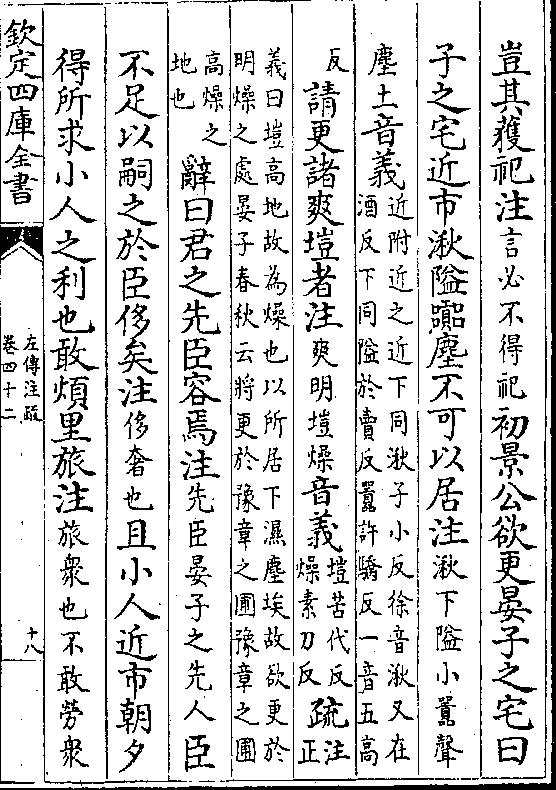 豈其獲祀注言必不得祀初景公欲更晏子之宅曰
子之宅近市湫隘囂塵不可以居注湫下隘小囂聲
塵土音義近附近之近下同湫子小反徐音湫又在
酒反下同隘於賣反囂許驕反一音五高
反請更諸爽塏者注爽明塏燥音義塏苦代反
燥素刀反疏注正
義曰塏高地故為燥也以所居下濕塵埃故欲更於
明燥之處晏子春秋云將更於豫章之圃豫章之圃
高燥之
地也辭曰君之先臣容焉注先臣晏子之先人臣
不足以嗣之於臣侈矣注侈奢也且小人近市朝夕
得所求小人之利也敢煩里旅注旅衆也不敢勞衆
欽定四庫全書
左傳注疏
卷四十二
十八